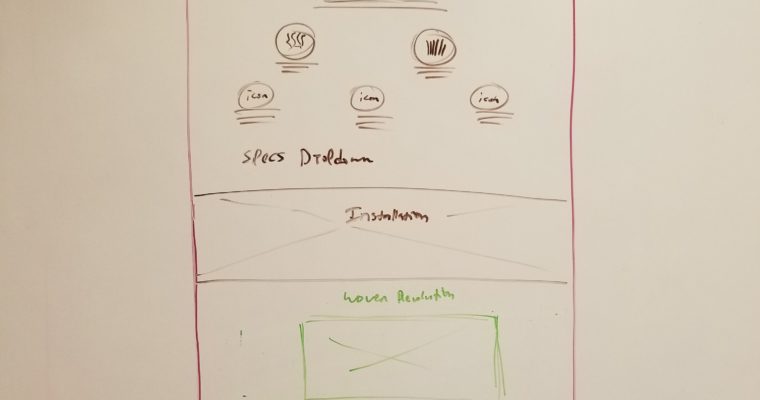 icon
icon
icon
Specs Dropdown
Installation
Woven Revolution